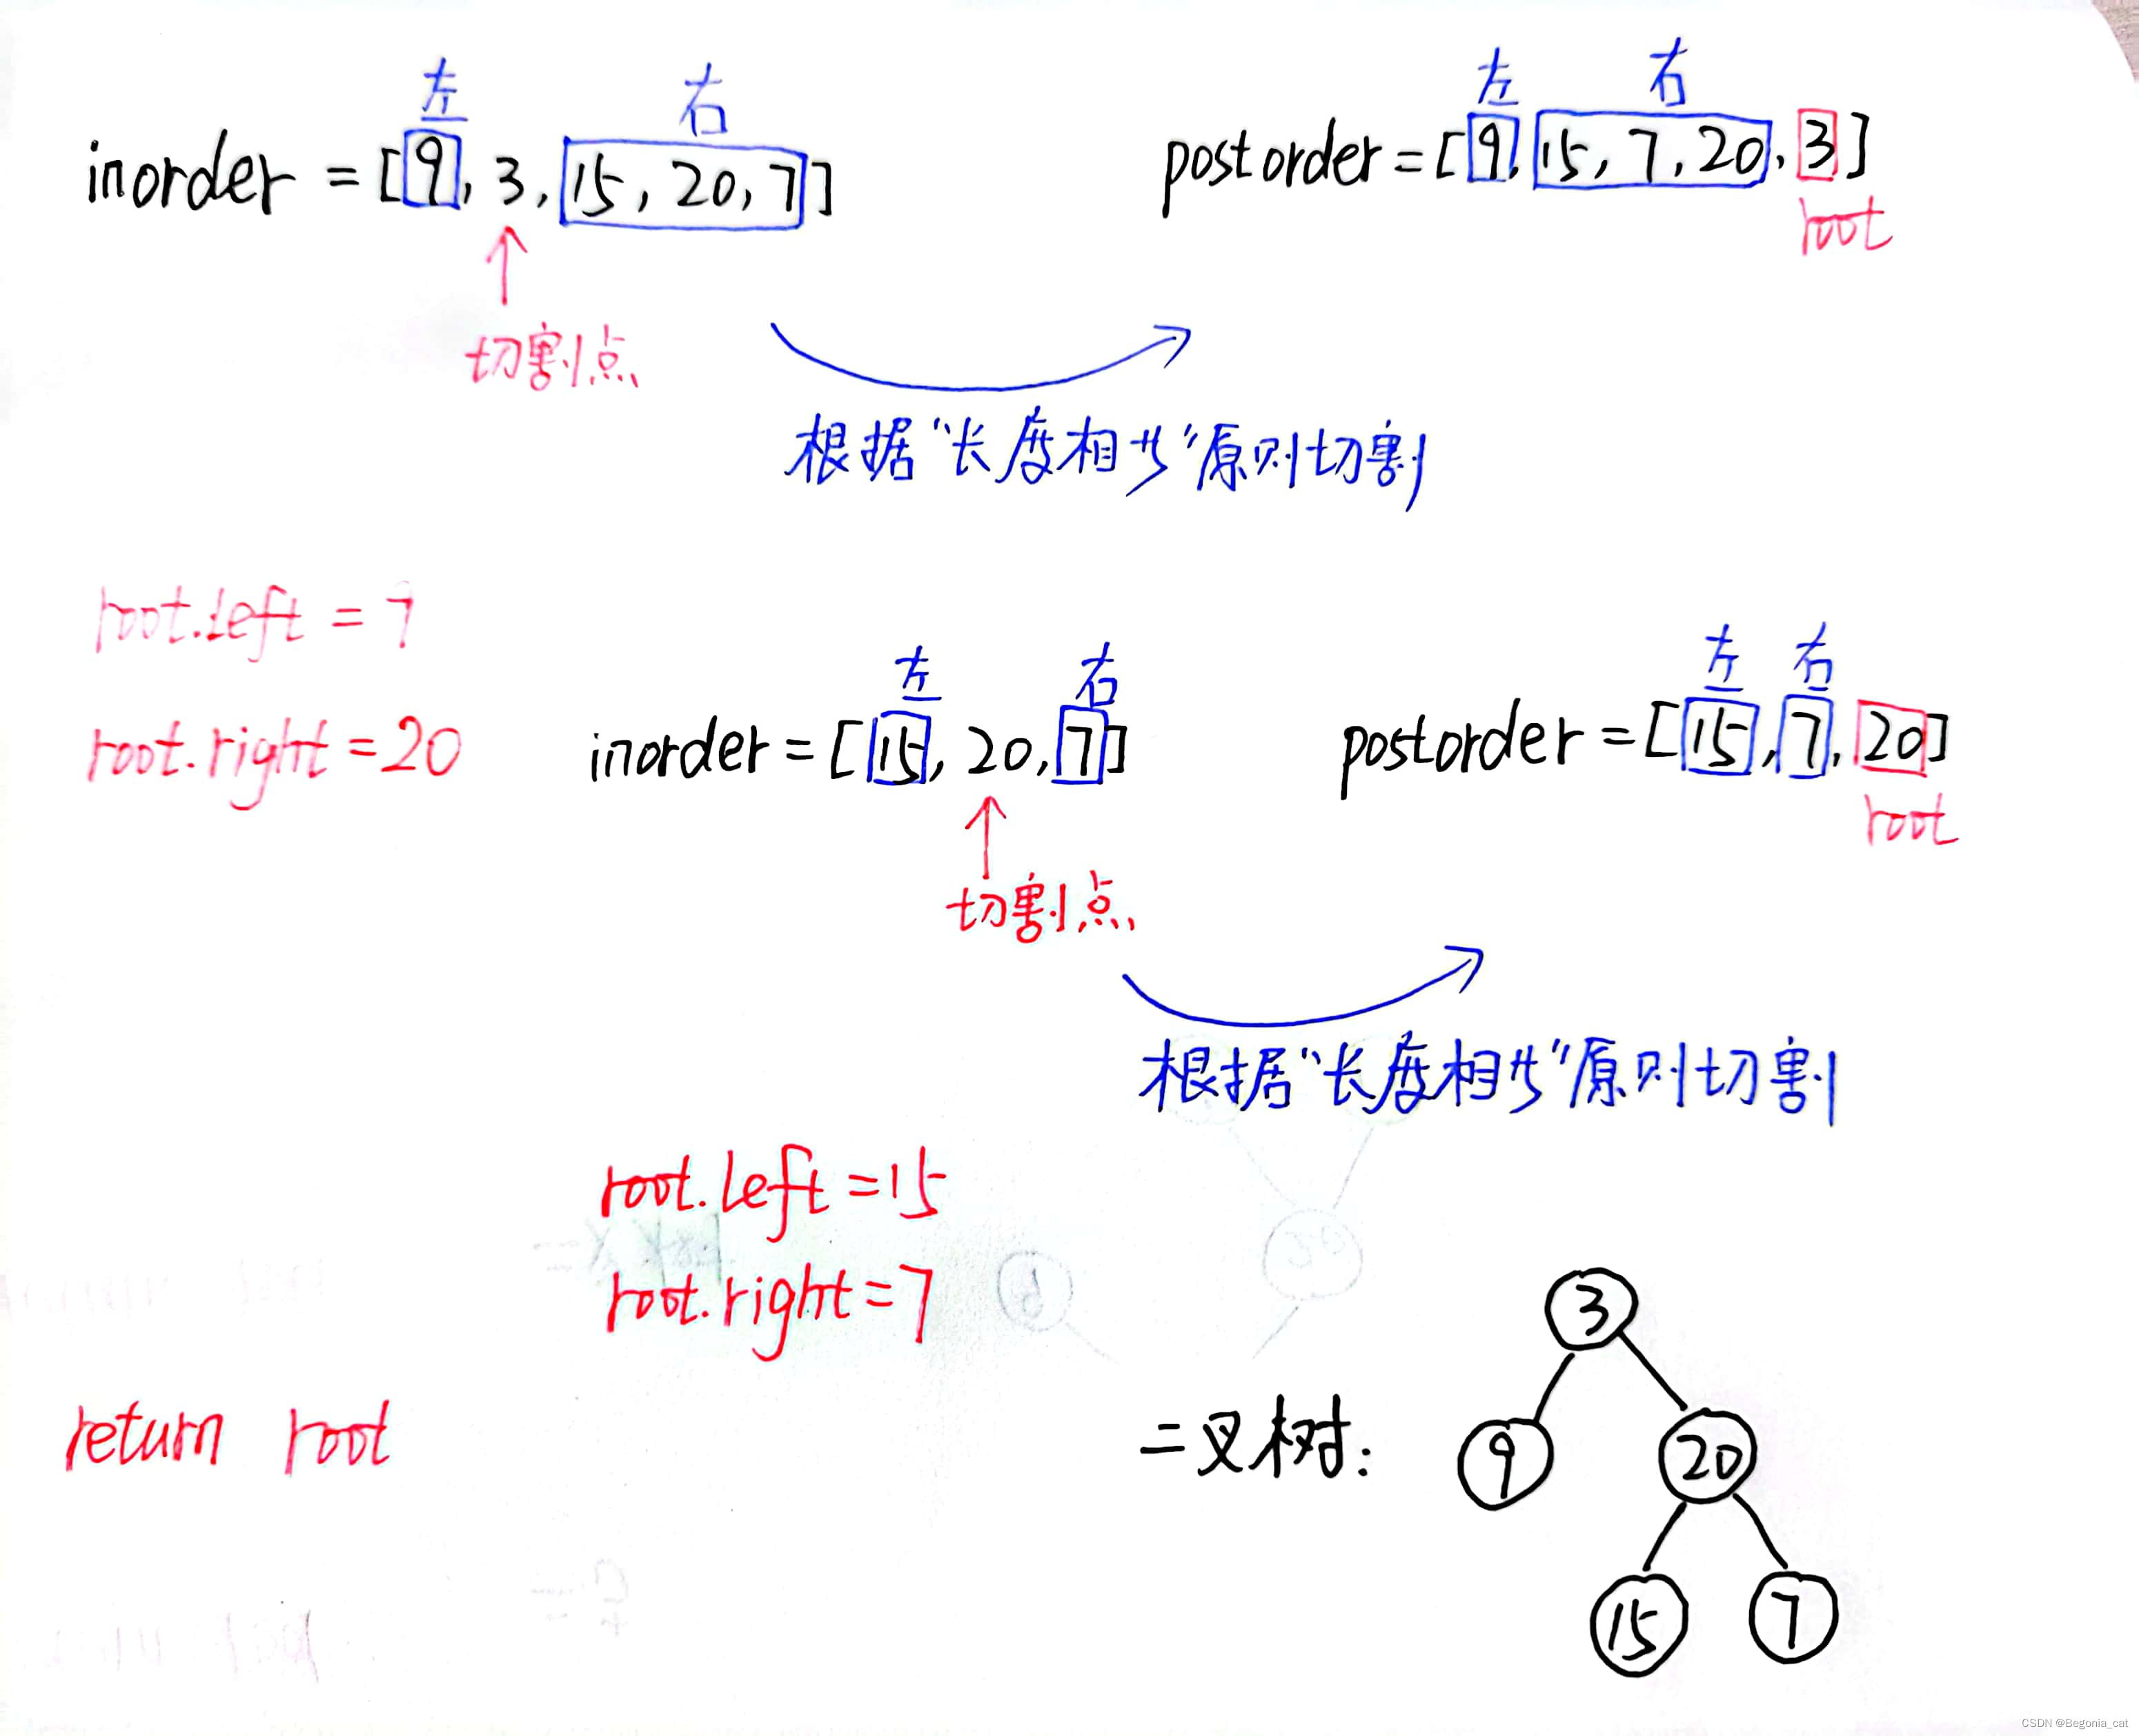 左 右
inorder = [9, 3, 15, 20, 7]
切割点
左 右
postorder = [9, 15, 7, 20, 3]
root
根据“长度相等”原则切割
root.left = 7
root.right = 20
左 右
inorder = [15, 20, 7]
切割点
左 右
postorder = [15, 7, 20]
root
根据“长度相等”原则切割
root.left = 15
root.right = 7
return root
二叉树:
3
9 20
15 7
CSDN @Begonia_cat